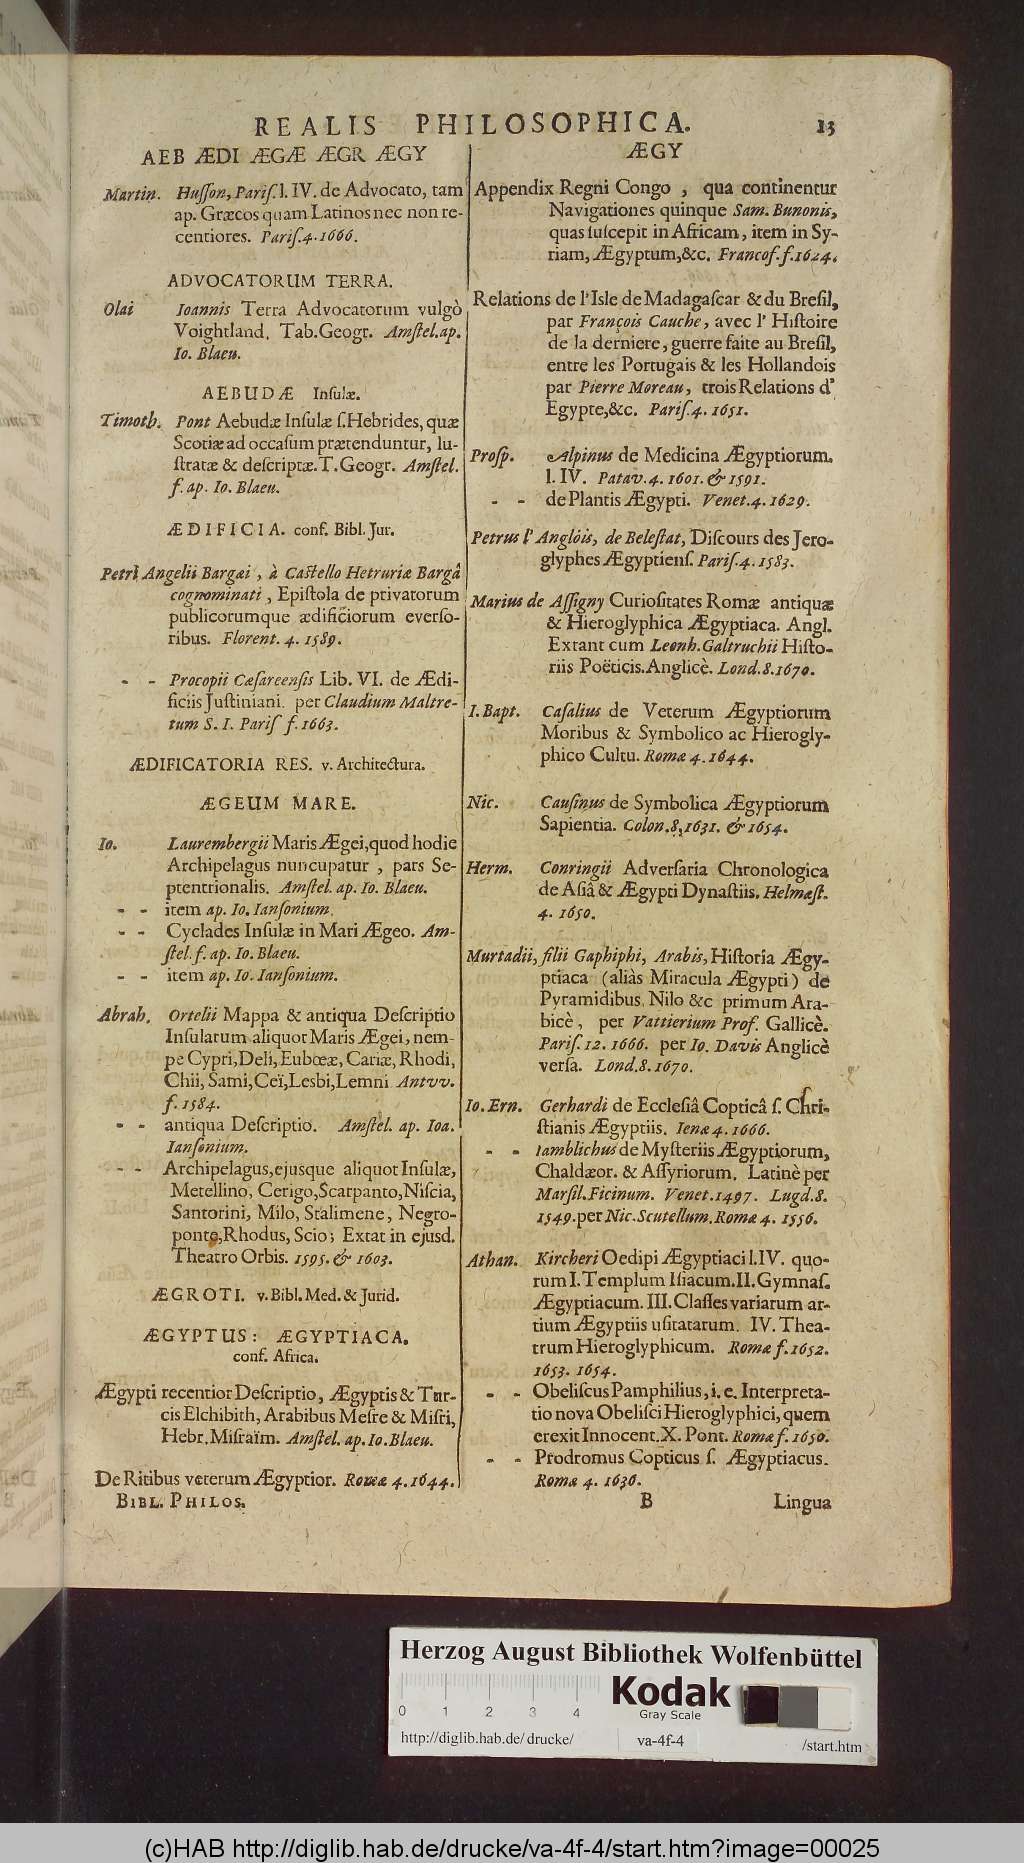 REALIS PHILOSOPHICA. 13
AEB ÆDI ÆGÆ ÆGR ÆGY
Martin. Huſſon, Pariſ. l. IV. de Advocato, tam
ap. Græcos quam Latinos nec non re-
centiores. Pariſ. 4. 1666.
ADVOCATORUM TERRA.
Olai Ioannis Terra Advocatorum vulgò
Voightland. Tab. Geogr. Amſtel. ap.
Io. Blaeu.
AEBUDÆ Inſulæ.
Timoth. Pont Aebudæ Inſulæ ſ. Hebrides, quæ
Scotiæ ad occaſum prætenduntur, lu-
ſtratæ & deſcriptæ. T. Geogr. Amſtel.
f. ap. Io. Blaeu.
ÆDIFICIA. conf. Bibl. Jur.
Petri Angelii Bargæi, à Caſtello Hetruriæ Bargâ
cognominati, Epiſtola de privatorum
publicorumque ædificiorum everſo-
ribus. Florent. 4. 1589.
- - Procopii Cæſareenſis Lib. VI. de Ædi-
ficiis Juſtiniani. per Claudium Maltre-
tum S. I. Pariſ f. 1663.
ÆDIFICATORIA RES. v. Architectura.
ÆGEUM MARE.
Io. Laurembergii Maris Ægei, quod hodie
Archipelagus nuncupatur, pars Se-
ptentrionalis. Amſtel. ap. Io. Blaeu.
- - item ap. Io. Ianſonium.
- - Cyclades Inſulæ in Mari Ægeo. Am-
ſtel. f. ap. Io. Blaeu.
- - item ap. Io. Ianſonium.
Abrah. Ortelii Mappa & antiqua Deſcriptio
Inſularum aliquot Maris Ægei, nem-
pe Cypri, Deli, Eubœæ, Cariæ, Rhodi,
Chii, Sami, Ceï, Lesbi, Lemni Antvv.
f. 1584.
- - antiqua Deſcriptio. Amſtel. ap. Ioa.
Ianſonium.
- - Archipelagus, ejusque aliquot Inſulæ,
Metellino, Cerigo, Scarpanto, Niſcia,
Santorini, Milo, Stalimene, Negro-
ponte, Rhodus, Scio; Extat in ejusd.
Theatro Orbis. 1595. & 1603.
ÆGROTI. v. Bibl. Med. & Jurid.
ÆGYPTUS: ÆGYPTIACA.
conf. Africa.
Ægypti recentior Deſcriptio, Ægyptis & Tur-
cis Elchibith, Arabibus Meſre & Miſri,
Hebr. Miſraïm. Amſtel. ap. Io. Blaeu.
De Ritibus veterum Ægyptior. Romæ 4. 1644.
BIBL. PHILOS.
ÆGY
Appendix Regni Congo, qua continentur
Navigationes quinque Sam. Bunonis,
quas ſuſcepit in Africam, item in Sy-
riam, Ægyptum, &c. Francof. f. 1624.
Relations de l'Isle de Madagaſcar & du Breſil,
par François Cauche, avec l' Hiſtoire
de la derniere, guerre faite au Breſil,
entre les Portugais & les Hollandois
par Pierre Moreau, trois Relations d'
Egypte, &c. Pariſ. 4. 1651.
Proſp. Alpinus de Medicina Ægyptiorum.
l. IV. Patav. 4. 1601. & 1591.
- - de Plantis Ægypti. Venet. 4. 1629.
Petrus l'Anglois, de Beleſtat, Diſcours des Jero-
glyphes Ægyptienſ. Pariſ. 4. 1583.
Marius de Aſſigny Curioſitates Romæ antiquæ
& Hieroglyphica Ægyptiaca. Angl.
Extant cum Leonh. Galtruchii Hiſto-
riis Poëticis. Anglicè. Lond. 8. 1670.
I. Bapt. Caſalius de Veterum Ægyptiorum
Moribus & Symbolico ac Hierogly-
phico Cultu. Romæ 4. 1644.
Nic. Cauſinus de Symbolica Ægyptiorum
Sapientia. Colon. 8. 1631. & 1654.
Herm. Conringii Adverſaria Chronologica
de Aſiâ & Ægypti Dynaſtiis. Helmæſt.
4. 1650.
Murtadii, filii Gaphiphi, Arabis, Hiſtoria Ægy-
ptiaca (aliàs Miracula Ægypti) de
Pyramidibus, Nilo &c primum Ara-
bicè, per Vattierium Prof. Gallicè.
Pariſ. 12. 1666. per Io. Davis Anglicè
verſa. Lond. 8. 1670.
Io. Ern. Gerhardi de Eccleſiâ Copticâ ſ. Chri-
ſtianis Ægyptiis. Ienæ 4. 1666.
- - Iamblichus de Myſteriis Ægyptiorum,
Chaldæor. & Aſſyriorum. Latinè per
Marſil. Ficinum. Venet. 1497. Lugd. 8.
1549. per Nic. Scutellum. Romæ 4. 1556.
Athan. Kircheri Oedipi Ægyptiaci l. IV. quo-
rum I. Templum Iſiacum. II. Gymnaſ.
Ægyptiacum. III. Claſſes variarum ar-
tium Ægyptiis uſitatarum. IV. Thea-
trum Hieroglyphicum. Romæ f. 1652.
1653. 1654.
- - Obeliſcus Pamphilius, i. e. Interpreta-
tio nova Obeliſci Hieroglyphici, quem
erexit Innocent. X. Pont. Romæ f. 1650.
- - Prodromus Copticus ſ. Ægyptiacus.
Romæ 4. 1636.
B Lingua
Herzog August Bibliothek Wolfenbüttel
0 1 2 3 4
Kodak
Gray Scale
http://diglib.hab.de/drucke/ va-4f-4 /start.htm
(c)HAB http://diglib.hab.de/drucke/va-4f-4/start.htm?image=00025